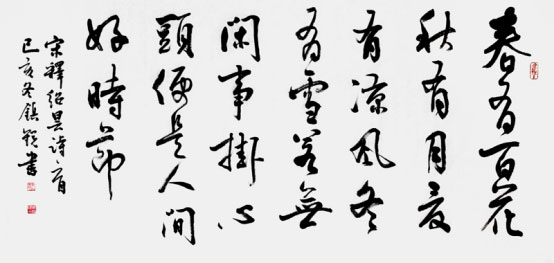 春有百花
秋有月夏
有涼風冬
有雪若無
閑事掛心
頭便是人間
好時節
宋釋紹曇詩一首
己亥冬鎮書